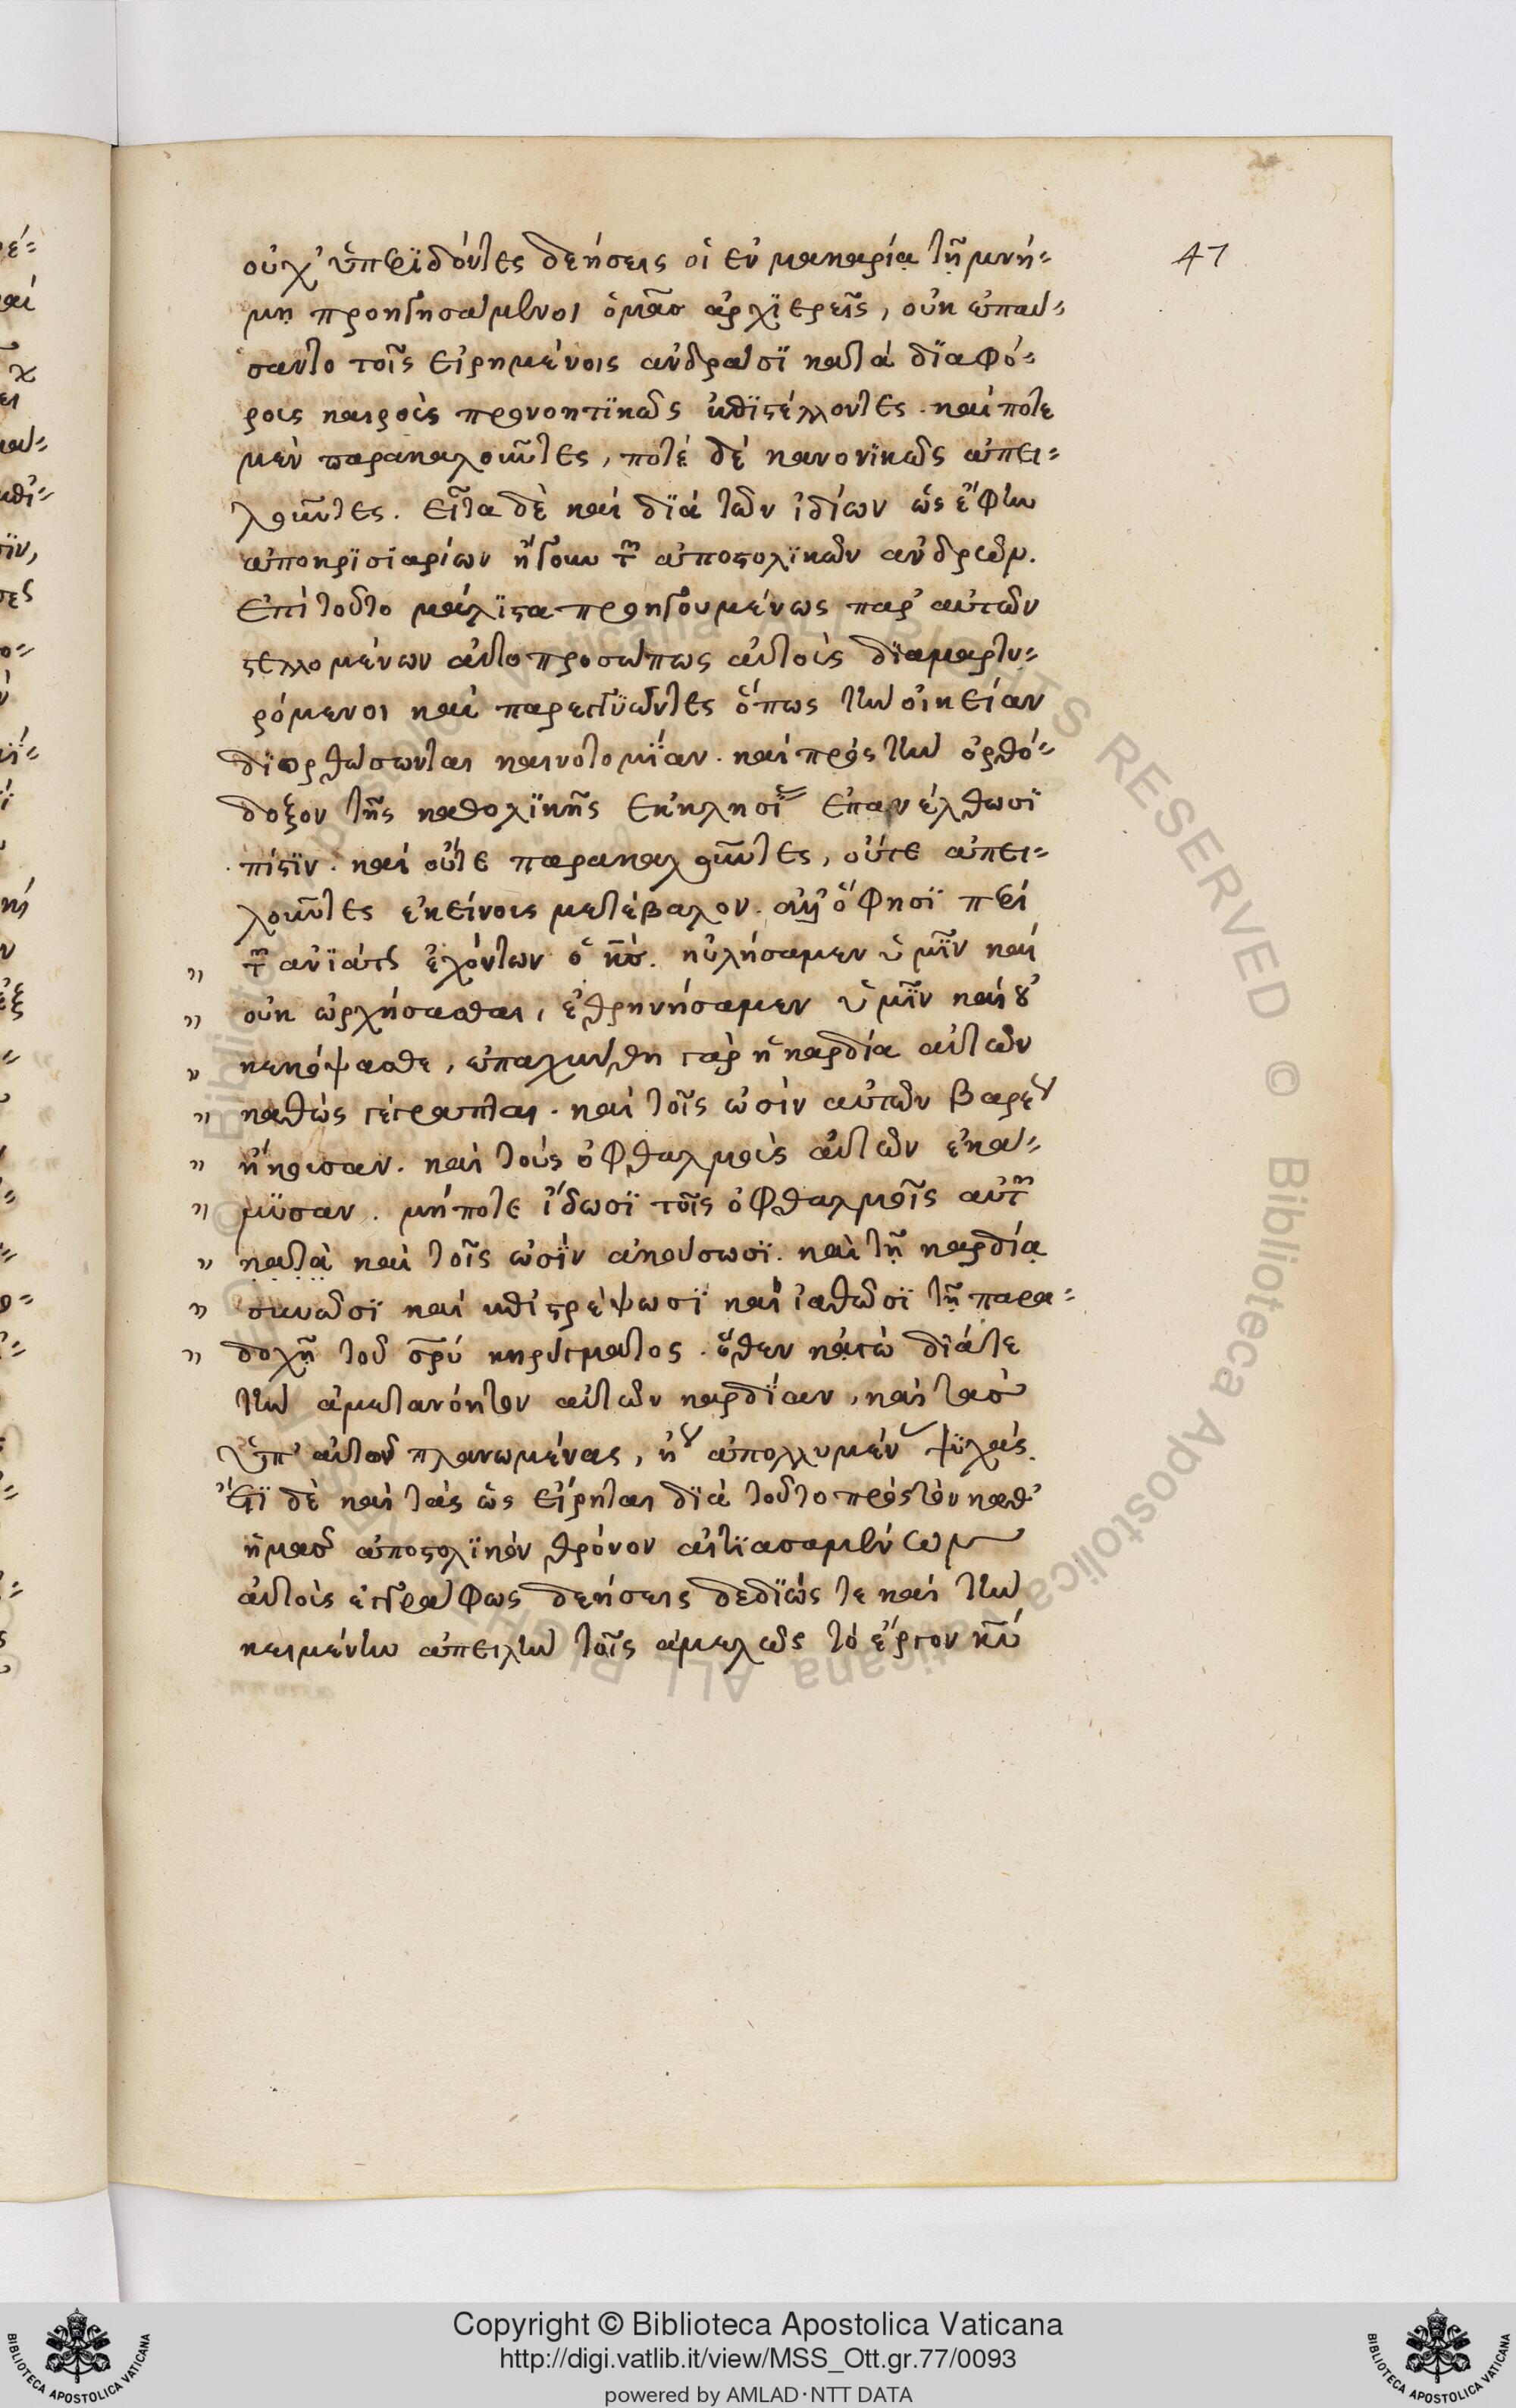 οὐχ' ὑπεριδόντες δεήσεις οἱ ἐν μακαρία τῆ μνή=
μη προηγησάμενοι ὁμᾶσ ἀρχϊερεῖς, οὐκ ἐπαύ=
σαντο τοῖς εἰρημένοις ἀνδράσϊ κατὰ δϊαφό=
ροις καιροῖς προνοητϊκῶς ἐπϊστέλλοντες. καί ποτε
μὲν παρακαλοῦντες, ποτὲ δὲ κανονϊκῶς ἀπει=
λοῦντες. εἶτα δὲ καὶ δϊὰ τῶν ἰδίων ὡς ἔφην
ἀποκρϊσιαρίων ἤγουν τῶν ἀποστολϊκῶν ἀνδρῶν.
ἐπὶ τοῦτο μάλϊστα προηγουμένως παρ' αὐτῶν
στελλομένων αὐτοπροσώπως αὐτοῖς δϊαμαρτυ=
ρόμενοι καὶ παρεγγϋῶντες ὅπως τὴν οἰκείαν
δϊορθώσωνται καινοτομΐαν. καὶ πρὸς τὴν ὀρθό=
δοξον τῆς καθολϊκῆς ἐκκλησϊ ἐπανέλθωσϊ
πίστϊν. καὶ οὔτε παρακαλοῦντες, οὔτε ἀπει=
λοῦντες ἐκείνοις μετέβαλον. ἀλλ' ὅ φησϊ περὶ
" τῶν ἀνϊάτως ἐχόντων ὁ κ̅ς̅. ηὐλήσαμεν ὑμῖν καὶ
" οὐκ ὠρχήσασθαι, ἐθρηνήσαμεν ὑμῖν καὶ οὐ
" κεκόψασθε, ἐπαχύνθη γὰρ ἡ καρδία αὐτῶν
" καθὼς γέγραπται. καὶ τοῖς ὠσὶν αὐτῶν βαρέως
" ἤκουσαν. καὶ τοὺς ὀφθαλμοὺς αὐτῶν ἐκά=
" μϋσαν. μήποτε ἴδωσϊ τοῖς ὀφθαλμοῖς αὐτῶν
" κατὰ καὶ τοῖς ὠσϊν ἀκούσωσϊ. καὶ τῆ καρδία
" συνῶσϊ καὶ ἐπιστρέψωσϊ καὶ ἰαθῶσϊ τῆ παρα=
" δοχῆ τοῦ σ̅ρ̅υ̅ κηρύγματος. ὅθεν κἀγὼ διά τε
τὴν ἀμετανόητον αὐτῶν καρδΐαν, καὶ τὰσ
ὑπ' αὐτῶν πλανωμένας, ἢ ἀπολλυμένας ψϋχάς.
ἔτϊ δὲ καὶ τὰς ὡς εἴρηται δϊὰ τοῦτο πρὸς τὸν καθ'
ἡμᾶσ ἀποστολϊκὸν θρόνον αἰτϊασαμένων
αὐτοὺς ἐγγράφως δεήσεις δεδϊώς τε καὶ τὴν
κειμένην ἀπειλὴν τοῖς ἀμελῶς τὸ ἔργον κ̅υ̅
47
Copyright © Biblioteca Apostolica Vaticana
http://digi.vatlib.it/view/MSS_Ott.gr.77/0093
powered by AMLAD·NTT DATA